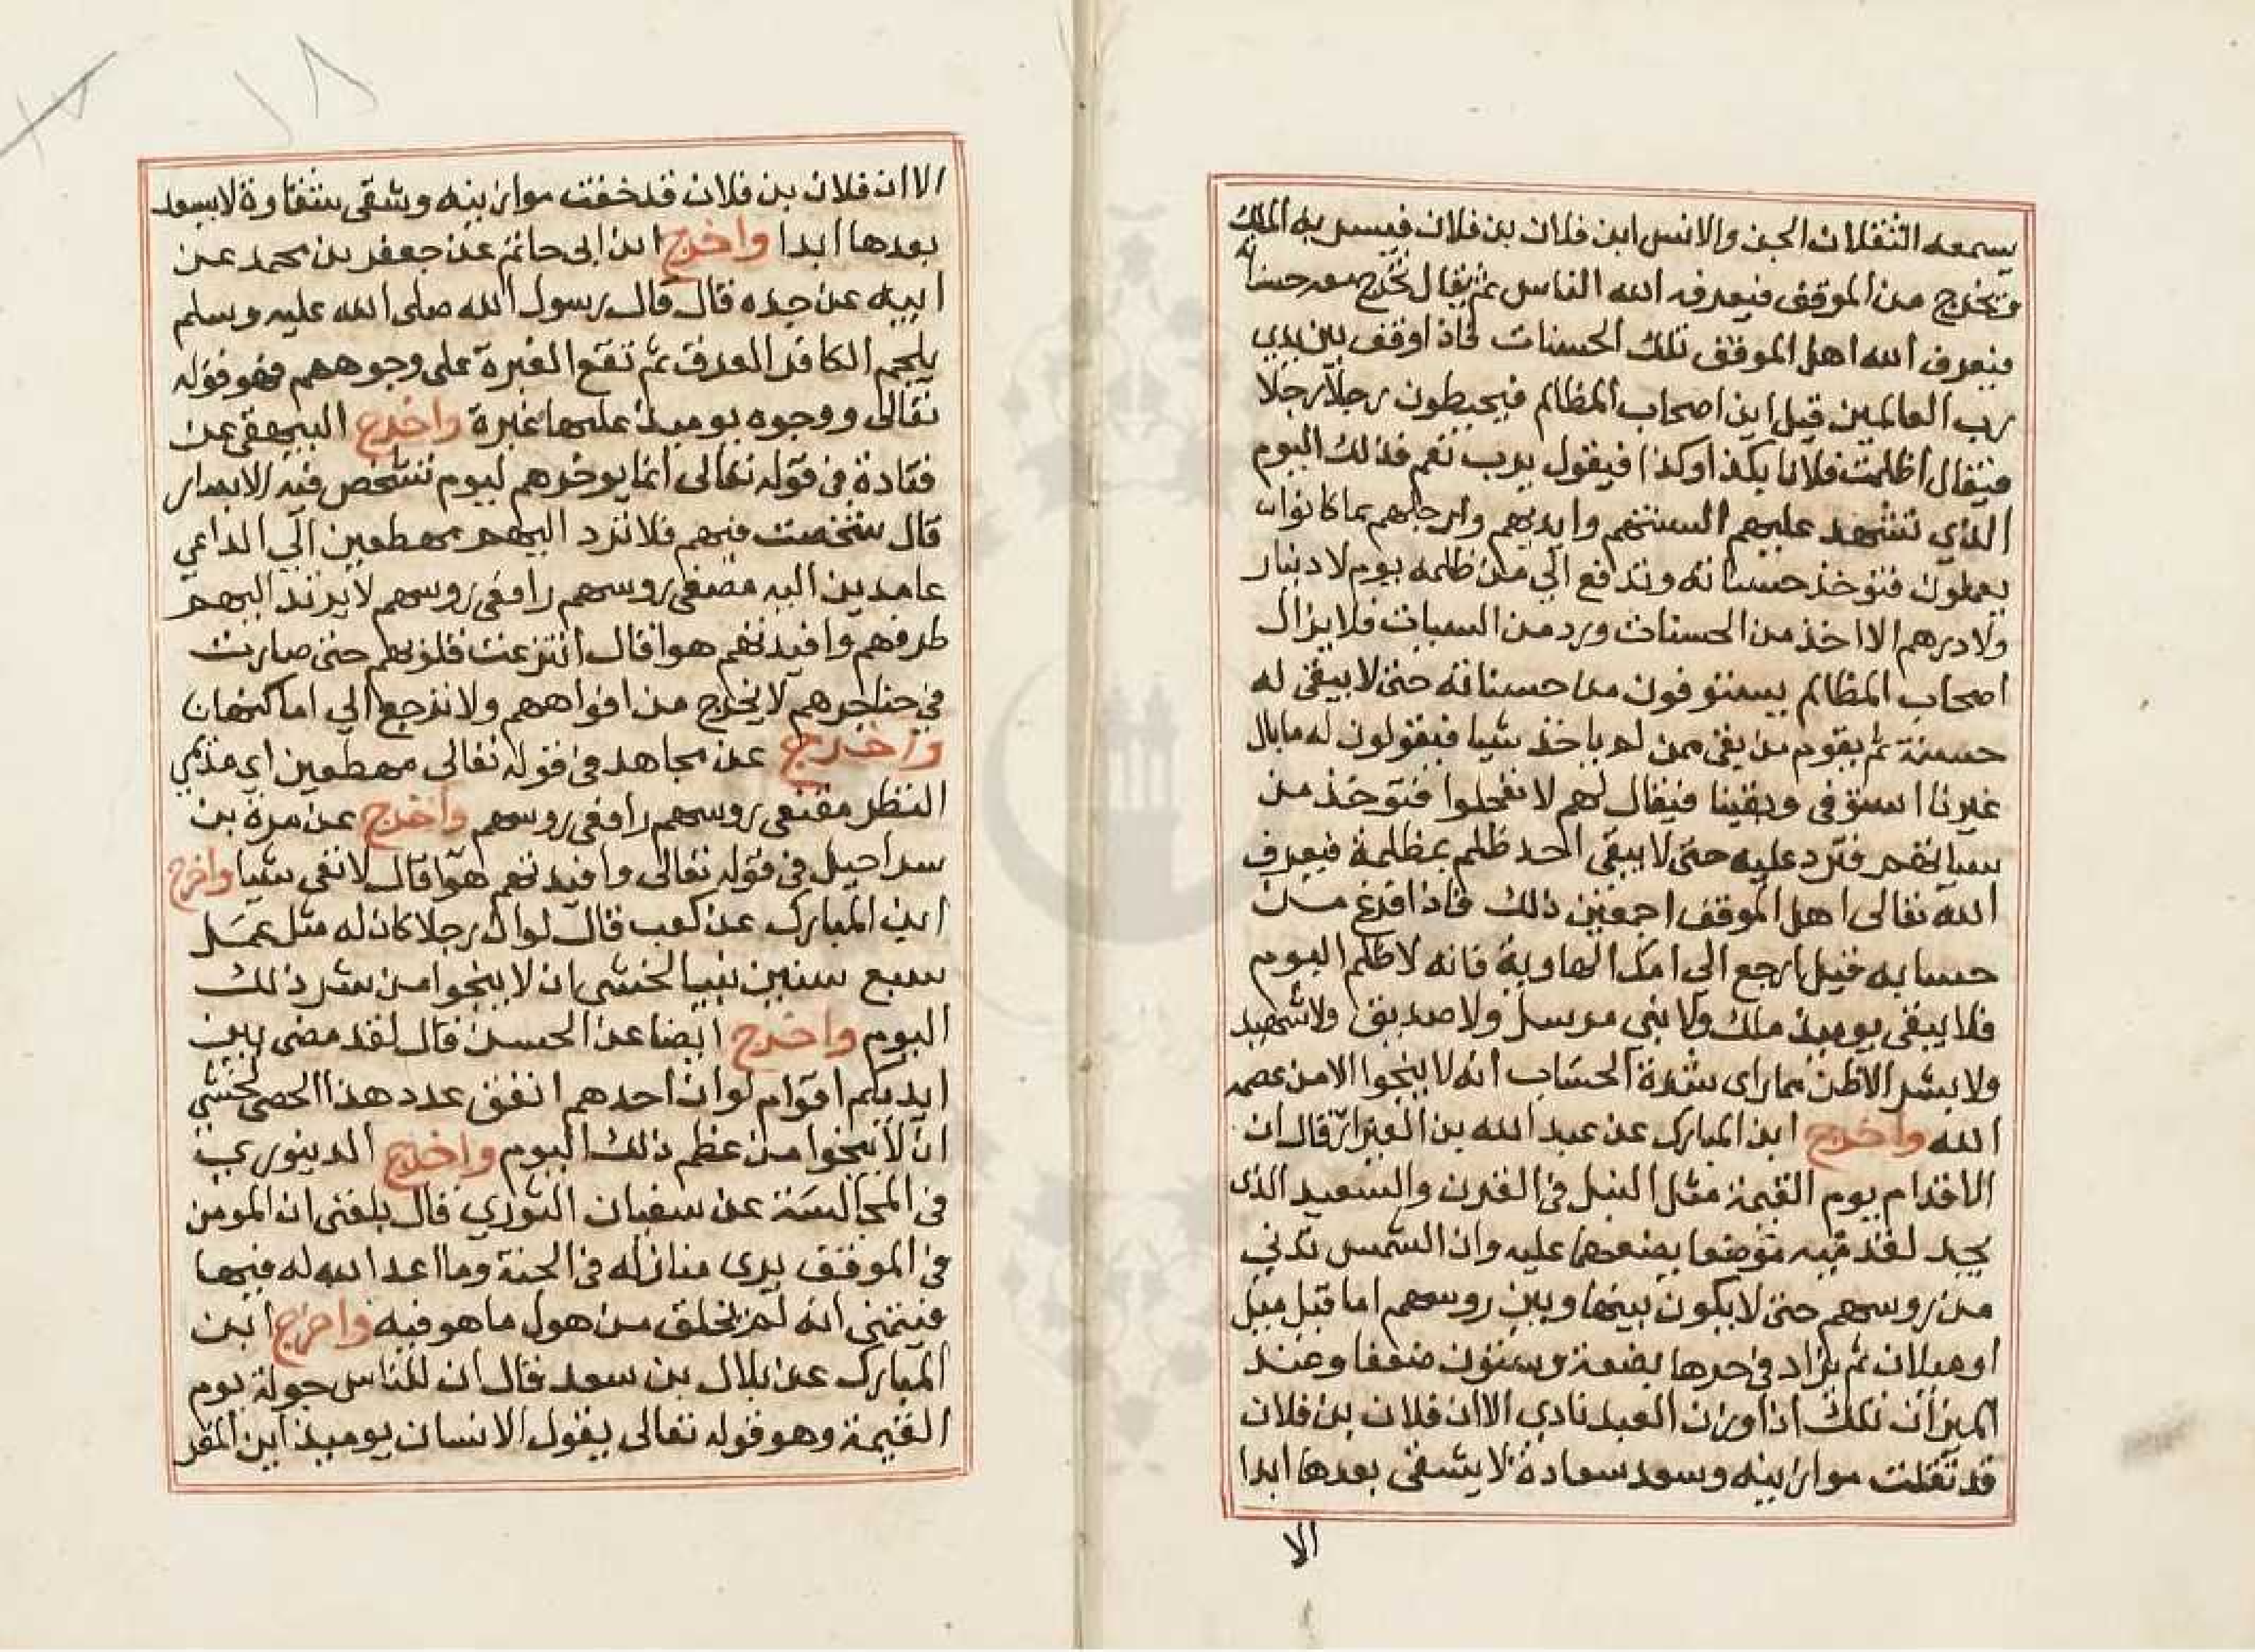 يسمعه الثقلان الجن والانس اين فلان بن فلان فيسير به الملك
ويخرج من الموقف فيعرفه الله الناس ثم يقال تخرج معه حسناته
فيعرف الله اهل الموقف تلك الحسنات فاذا وقف بين يدي
رب العالمين قيل اين اصحاب المظالم فيحيطون رجلا رجلا
فيقال اظلمت فلانا بكذا وكذا فيقول يرب نعم فذلك اليوم
الذي تشهد عليهم السنتهم وايديهم وارجلهم بما كانوا
يعملون فتوخذ حسناته وتدفع الي من ظلمه يوم لا دينار
ولا درهم الا اخذ من الحسنات ورد من السيات فلا يزال
اصحاب المظالم يستوفون من حسناته حتى لا يبقى له
حسنة ثم يقوم من بقى ممن لم ياخذ شيا فيقولون له ما بال
غيرنا استوفى وبقينا فيقال لهم لا تعجلوا فتوخذ من
سياتهم فترد عليه حتى لا يبقى احد ظلم بمظلمة فيعرف
الله تعالى اهل الموقف اجمعين ذلك فاذا فرغ من
حسابه قيل ارجع الى امك الهاوية فانه لا ظلم اليوم
فلا يبقى يوميذ ملك ولا بنى مرسل ولا صديق ولا شهيد
ولا بشر الا ظن بما راى شدة الحساب انه لا ينجوا الا من عصمه
الله واخرج ابن المبارك عن عبد الله بن العيزار قال ان
الاقدام يوم القيمة مثل النبل في القرن والسعيد الذى
يجد لقدميه موضعا يضعهما عليه وان الشمس تدني
من روسهم حتى لا يكون بينها وبين روسهم اما قيل ميل
او ميلان ثم يزاد في حرها بضعة وستون ضعفا وعند
الميزان ملك اذا وزن العبد نادي الا ان فلان بن فلان
قد ثقلت موازينه وسعد سعادة لا يشقى بعدها ابدا
الا
الا ان فلان بن فلان قد خفت موازينه وشقى شقاوة لا يسعد
بعدها ابدا واخرج ابن ابى حاتم عن جعفر بن محمد عن
ابيه عن جده قال قال رسول الله صلى الله عليه وسلم
يلجم الكافر العرق ثم تقع الغبرة على وجوههم فهو قوله
تعالى ووجوه يوميذ عليها غبرة واخرج البيهقى عن
قتادة في قوله تعالى انما يوخرهم ليوم تشخص فيه الابصار
قال شخصت فيهم فلا ترد اليهم مهطعين الي الداعي
عامدين اليه مقنعى روسهم رافعى روسهم لا يرتد اليهم
طرفهم وافيدتهم هوا قال انتزعت قلوبهم حتى صارت
في حناجرهم لا يخرج من افواههم ولا ترجع الي اماكنها
واخرج عن مجاهد في قوله تعالى مهطعين اي مديمي
النظر مقنعى روسهم رافعى روسهم واخرج عن مرة بن
سراحيل في قوله تعالى وافيدتهم هوا قال لا تعى شيا واخرج
ابن المبارك عن كعب قال لو ان رجلا كان له مثل عمل
سبع سنين نبيا لخشى ان لا ينجوا من شر ذلك
اليوم واخرج ايضا عن الحسن قال لقد مضى بين
ايديكم اقوام لو ان احدهم انفق عدد هذا الحصى لخشي
ان لا ينجوا من عظم ذلك اليوم واخرج الدينوري
في المجالسة عن سفيان الثوري قال بلغنى ان المومن
في الموقف يرى منازله في الجنة وما اعد الله له فيها
فيتمنى انه لم يخلق من هول ما هو فيه واخرج ابن
المبارك عن بلال بن سعد قال ان للناس جولة يوم
القيمة وهو قوله تعالى يقول الانسان يوميذ اين المفر